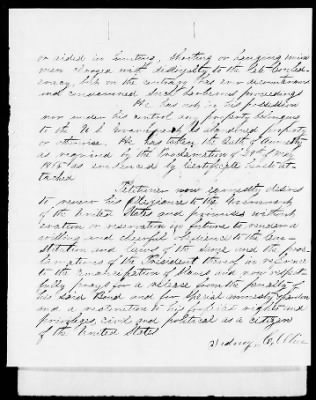 or aided in hunting, shooting or hanging union
men charged with disloyalty to the Confed-
eracy, but on the contrary has ever discountenanced
and condemned such barbarous proceedings
He has not in his possession
nor under his control any property belonging
to the U.S. Government, or abandoned property
or otherwise. He has taken the Oath of Amnesty
as required by the Proclamation of 29 of May
1865 as evidenced by Certificate hereto at-
tached
Petitioner now earnestly desires
to renew his allegiance to the Government
of the United States and promises without
evasion or reservation in future to render a
willing and cheerful obedience to the Con-
stitution and laws of the same, and the proc-
lamations of the President thereof in reference
to the emancipation of slaves and now respect-
fully prays for a release from the penalty of
his said Bond and for special amnesty & pardon
and a restoration to his forfeited rights and
privileges, civil and political as a citizen
of the United States
Sidney